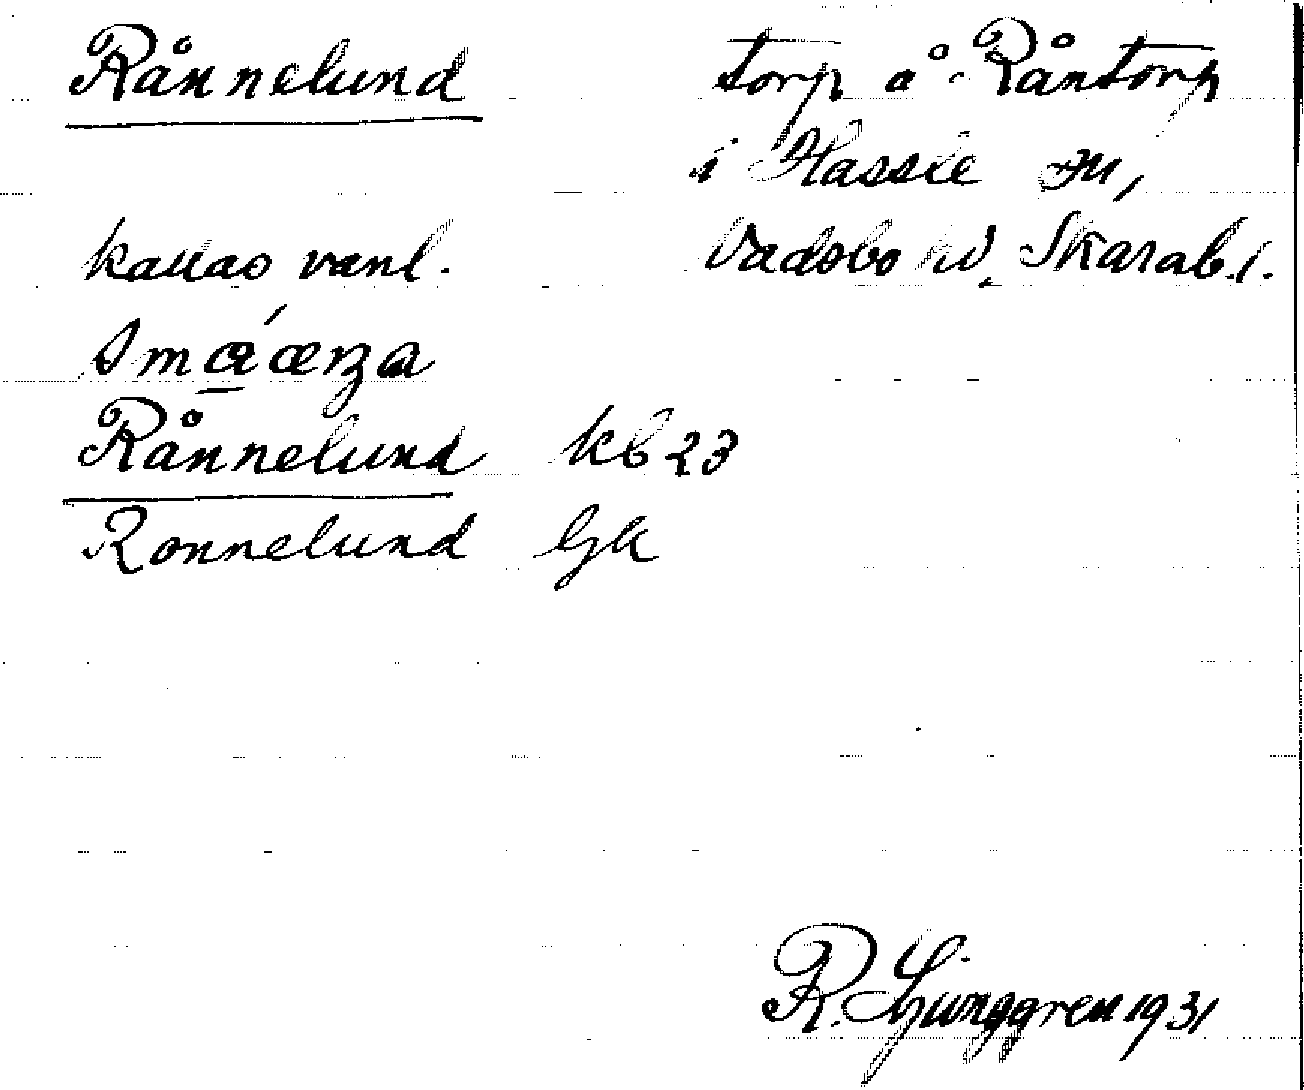 Rånnelund
torp å Råntorp
i Hassle sn,
Vadsbo hd. Skarab.l.
kallas vanl.
Småärza
Rånnelund kb 23
Ronnelund Gk
R. Ljunggren 1931